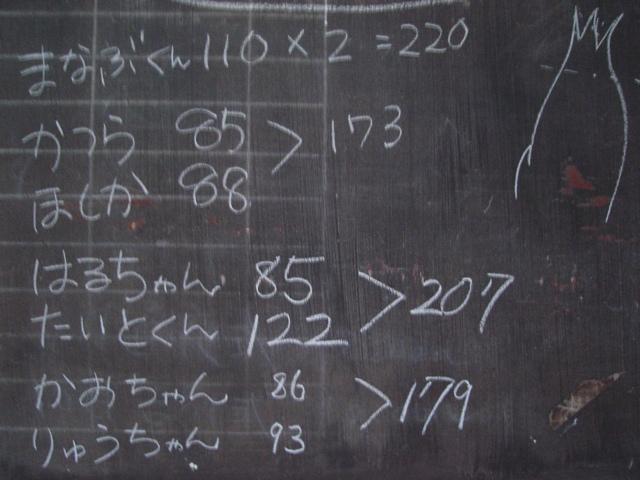 まなぶくん 110 × 2 = 220
かつら 85 > 173
ほしか 88
はるちゃん 85 > 207
たいとくん 122
かおちゃん 86 > 179
りゅうちゃん 93